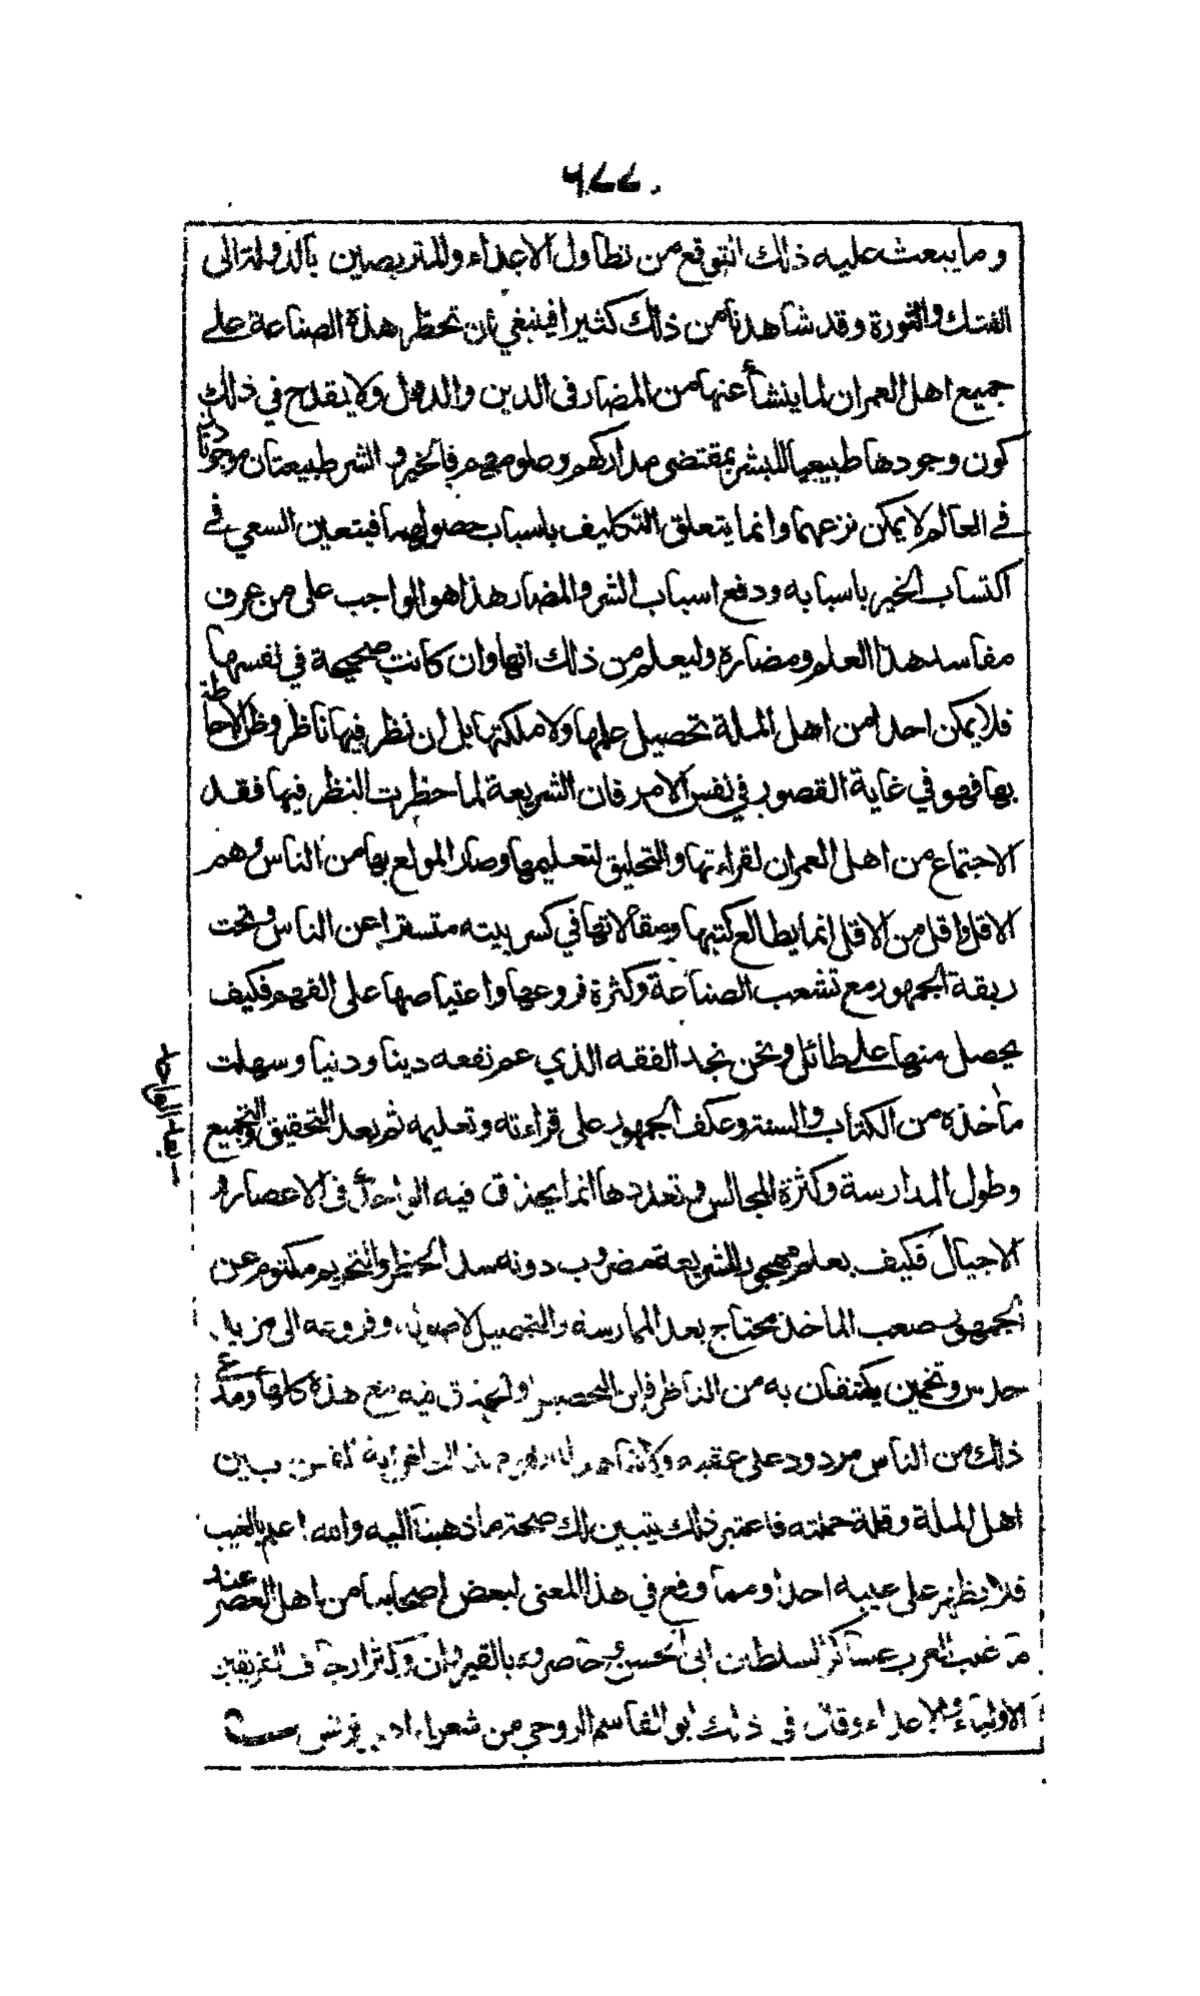 ٦٧٧
وما يبعث عليه ذلك التوقع من تطاول الاعداء والمتربصين بالدولة الى
الفتك والثورة وقد شاهدنا من ذلك كثيرا فينبغي ان تحظر هذه الصناعة على
جميع اهل العمران لما ينشأ عنها من المضار فى الدين والدول ولا يقدح في ذلك
كون وجودها طبيعيا للبشر بمقتضى مداركهم وعلومهم فالخير والشر طبيعتان موجودتان
في العالم لا يمكن نزعهما وانما يتعلق التكليف باسباب حصولهما فيتعين السعي في
اكتساب الخير باسبابه ودفع اسباب الشر والمضار هذا هو الواجب على من عرف
مفاسد هذا العلم ومضاره وليعلم من ذلك انها وان كانت صحيحة في نفسها
فلا يمكن احدا من اهل الملة تحصيل علمها ولا ملكتها بل ان نظر فيها ناظر وظن الاحاطة
بها فهو في غاية القصور في نفس الامر فان الشريعة لما حظرت النظر فيها فقد
الاجتماع من اهل العمران لقراءتها والتحليق لتعليمها وصار المولع بها من الناس وهم
الاقل واقل من الاقل انما يطالع كتبها ومقالاتها في كسر بيته متسترا عن الناس وتحت
ربقة الجمهور مع تشعب الصناعة وكثرة فروعها واعتياصها على الفهم فكيف
يحصل منها على طائل ونحن نجد الفقه الذي عم نفعه دينا ودنيا وسهلت
مآخذه من الكتاب والسنة وعكف الجمهور على قراءته وتعليمه ثم بعد التحقيق والتجميع
وطول المدارسة وكثرة المجالس وتعددها انما يحذق فيه الواحد فى الاعصار و
بعد الواحد
الاجيال فكيف بعلم مهجور للشريعة مضروب دونه سد الحظر والتحريم مكتوم عن
الجمهور صعب المآخذ محتاج بعد الممارسة والتحصيل لاصوله وفروعه الى مزيد
حدس وتخمين يكتنفان به من الناظر فاين التحصيل والحذق فيه مع هذه كلها ومدعي
ذلك من الناس مردود على عقبه ولا شاهد له يقوم بذلك لغرابة الفن بين
اهل الملة وقلة حملته فاعتبر ذلك يتبين لك صحة ما ذهبنا اليه والله اعلم بالغيب
فلا يظهر على غيبه احدا ومما وقع في هذا المعنى لبعض اصحابنا من اهل العصر عند
ما غلب العرب عساكر السلطان ابى الحسن وحاصروه بالقيروان وكثر ارجاف الفريقين
الاولياء والاعداء وقال فى ذلك ابو القاسم الروحي من شعراء اهل تونس